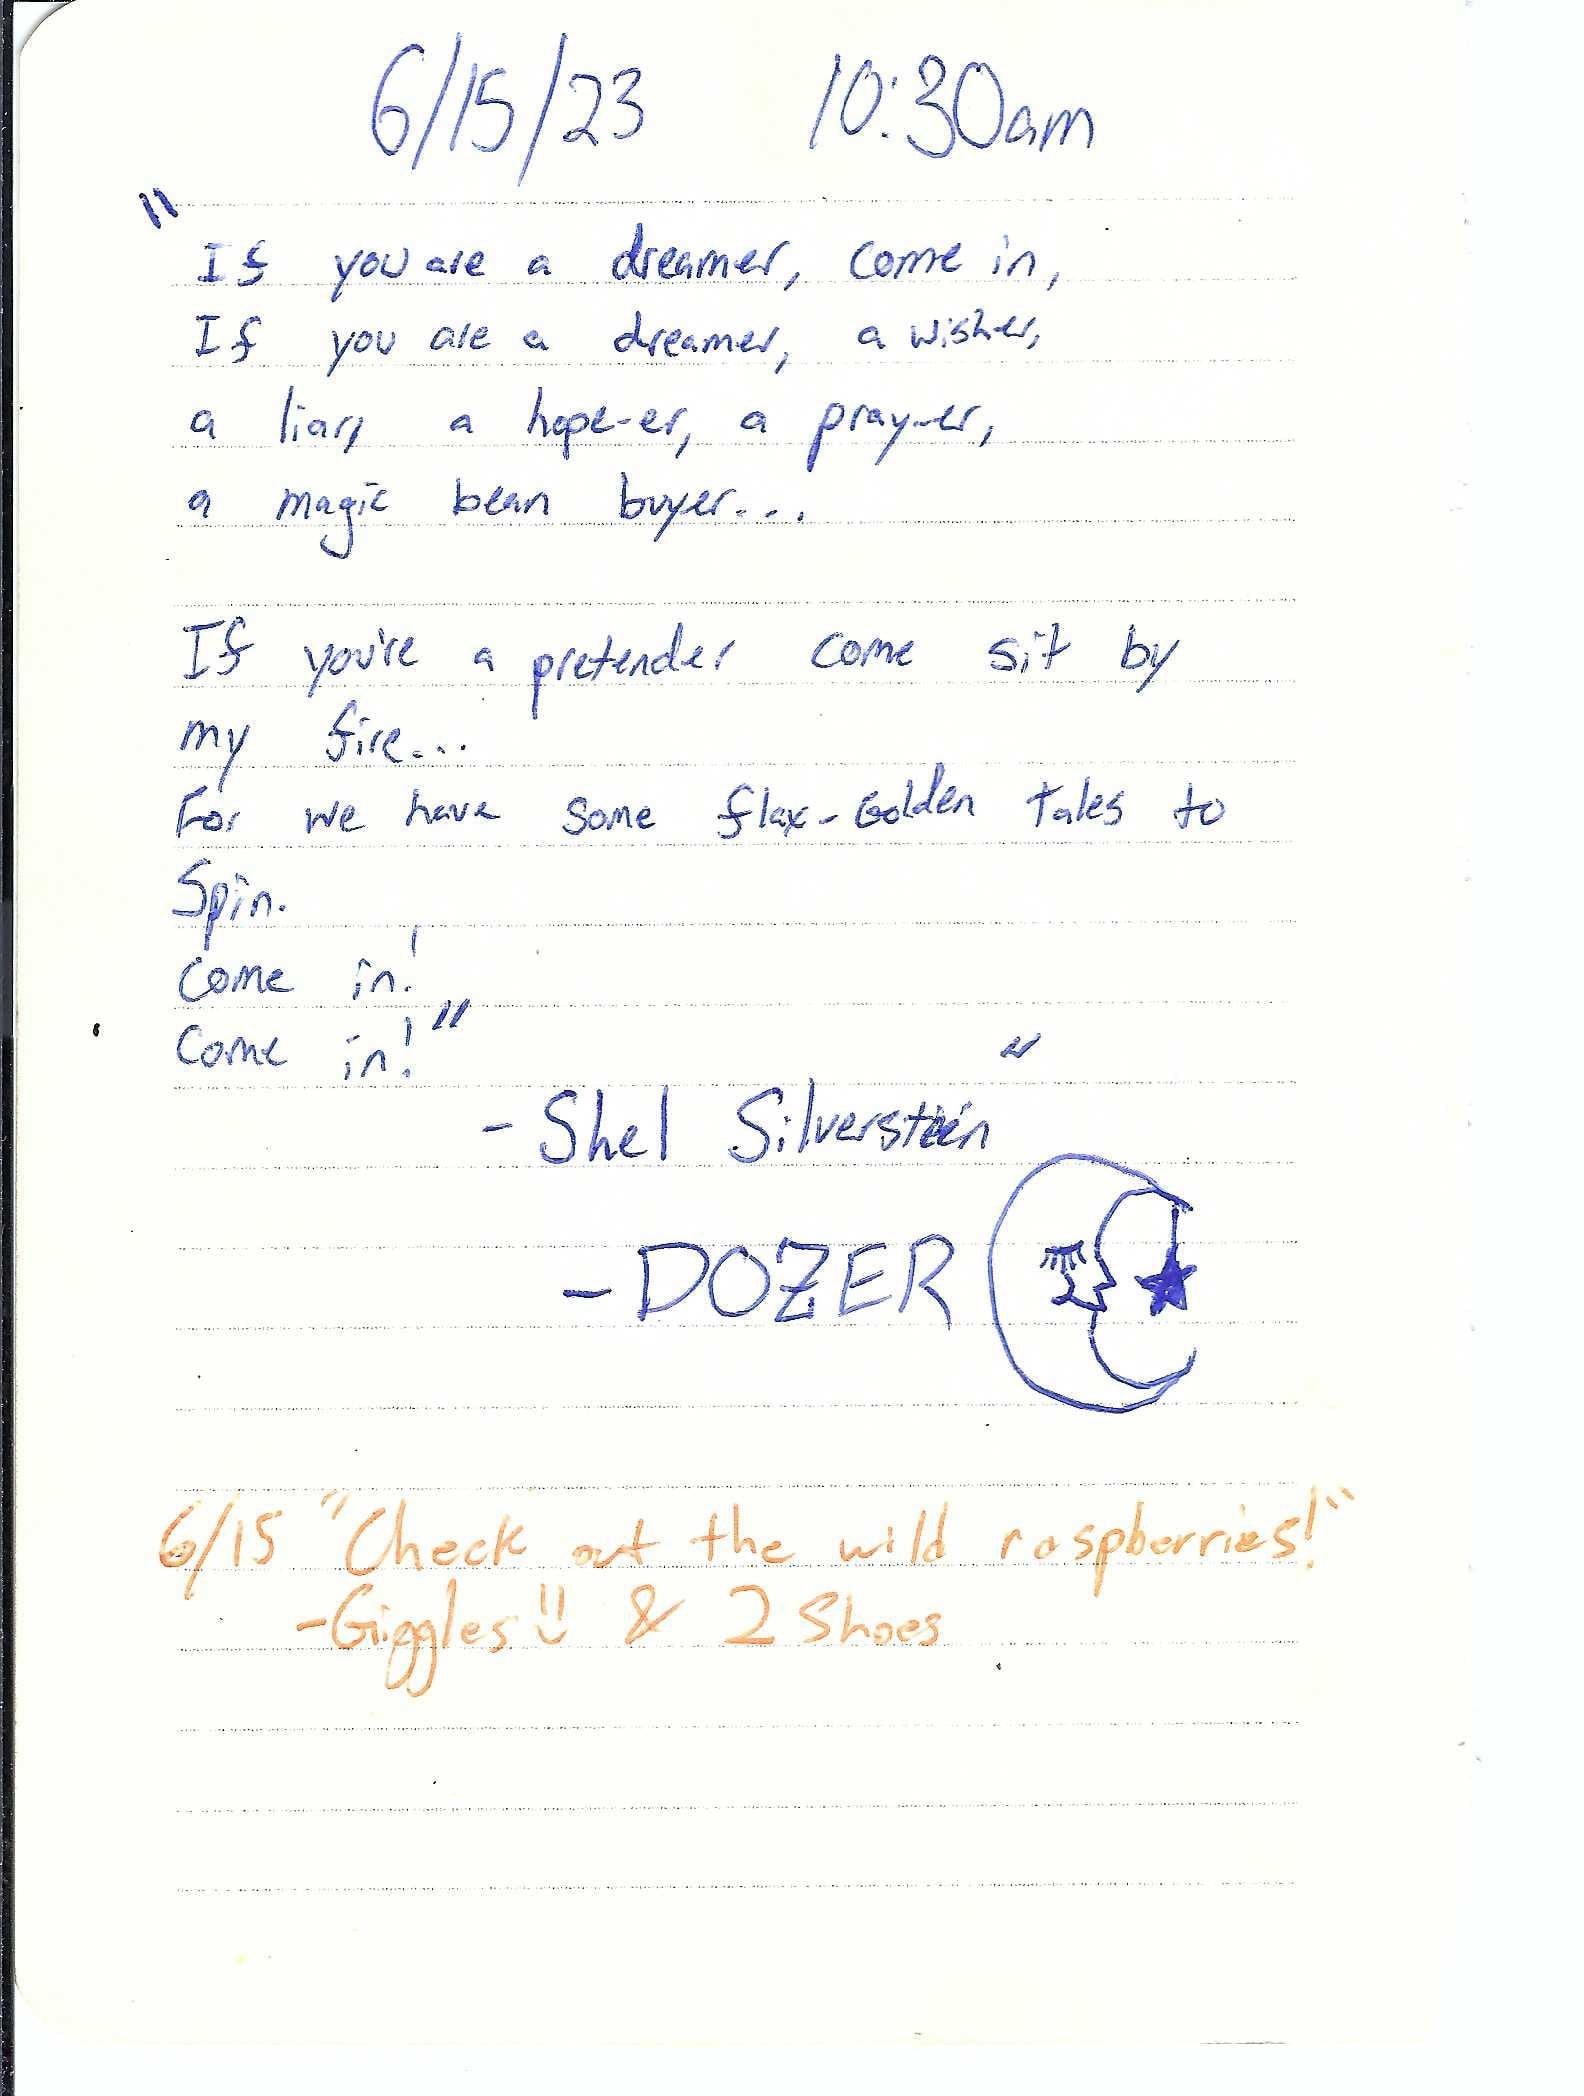 6/15/23 10:30am
"
If you are a dreamer, come in,
If you are a dreamer, a wisher,
a liar, a hope-er, a pray-er,
a magic bean buyer...
If you're a pretender come sit by
my fire...
For we have some flax-Golden tales to
Spin.
Come in!
Come in!"
"
- Shel Silverstein
- DOZER
6/15 "Check out the wild raspberries!"
- Giggles & 2 Shoes